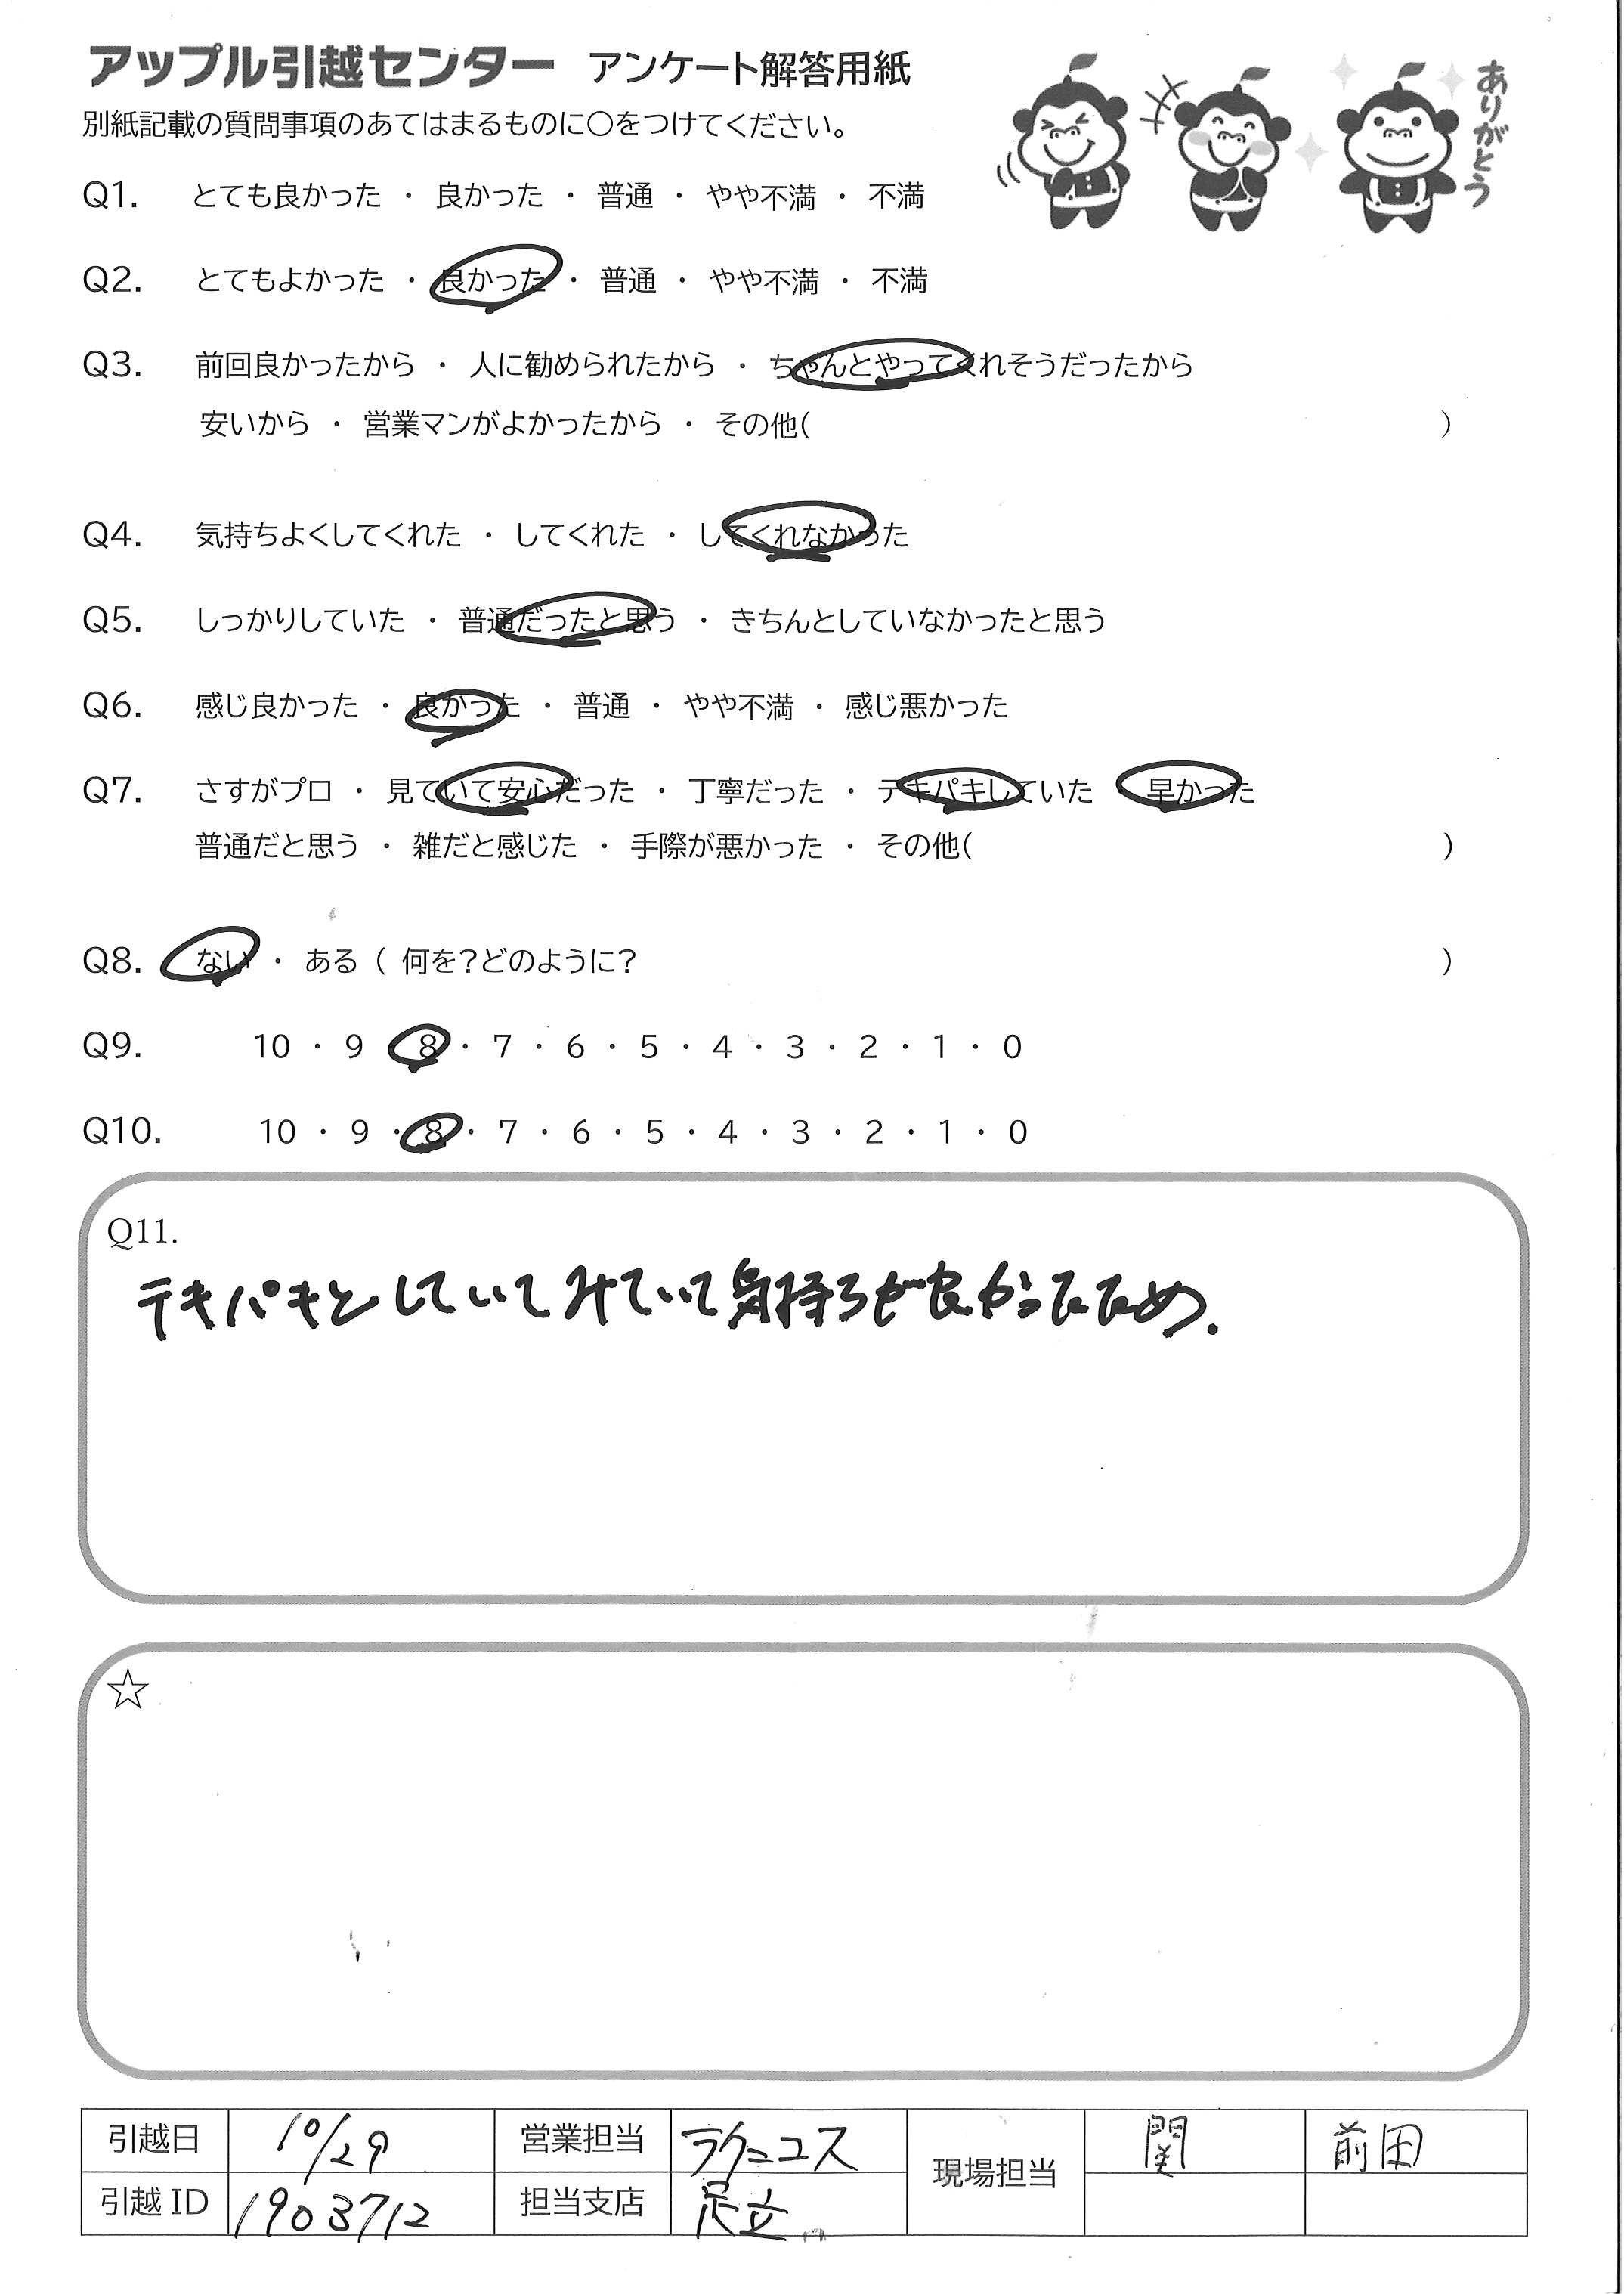 アップル引越センター アンケート解答用紙
ありがとう
別紙記載の質問事項のあてはまるものに〇をつけてください。
Q1. とても良かった ・ 良かった ・ 普通 ・ やや不満 ・ 不満
Q2. とてもよかった ・ 良かった ・ 普通 ・ やや不満 ・ 不満
Q3. 前回良かったから ・ 人に勧められたから ・ ちゃんとやってくれそうだったから
安いから ・ 営業マンがよかったから ・ その他( )
Q4. 気持ちよくしてくれた ・ してくれた ・ してくれなかった
Q5. しっかりしていた ・ 普通だったと思う ・ きちんとしていなかったと思う
Q6. 感じ良かった ・ 良かった ・ 普通 ・ やや不満 ・ 感じ悪かった
Q7. さすがプロ ・ 見ていて安心だった ・ 丁寧だった ・ テキパキしていた 早かった
普通だと思う ・ 雑だと感じた ・ 手際が悪かった ・ その他( )
Q8. ない ・ ある ( 何を?どのように? )
Q9. 10 ・ 9 8 ・ 7 ・ 6 ・ 5 ・ 4 ・ 3 ・ 2 ・ 1 ・ 0
Q10. 10 ・ 9 ・ 8 ・ 7 ・ 6 ・ 5 ・ 4 ・ 3 ・ 2 ・ 1 ・ 0
Q11.
テキパキとしていてみていて気持ちが良かったため.
☆
引越日 10/29 営業担当 ラクニコス 現場担当 関 前田
引越 ID 1903712 担当支店 足立